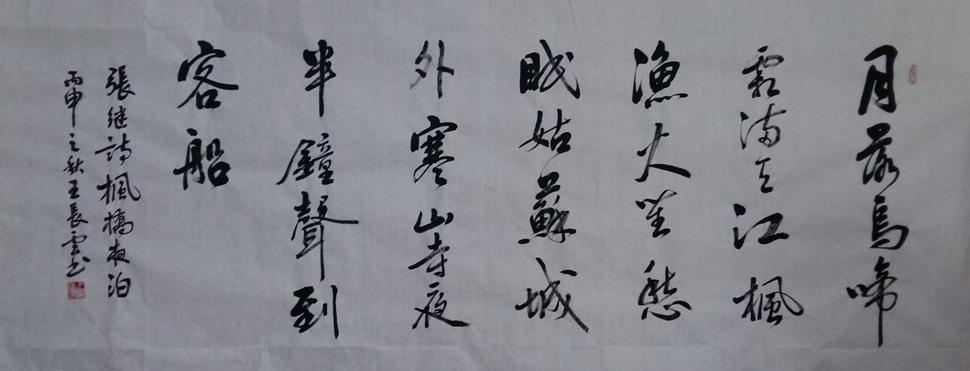 月落烏啼
霜满天江楓
漁火坐愁
眠姑蘇城
外寒山寺夜
半鐘聲到
客船
張继詩楓橋夜泊
丙申之秋王長雲书